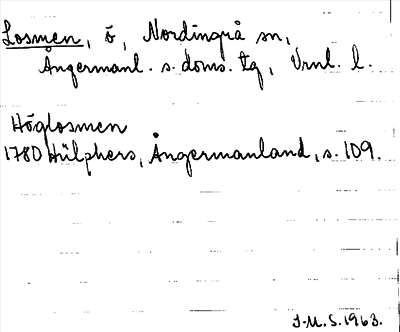 Losmen, ö, Nordingrå sn,
Ångermanl. s. doms. tg, Vrnl. l.
Höglosmen
1780 Hülphers, Ångermanland, s. 109.
I.M.S. 1963.